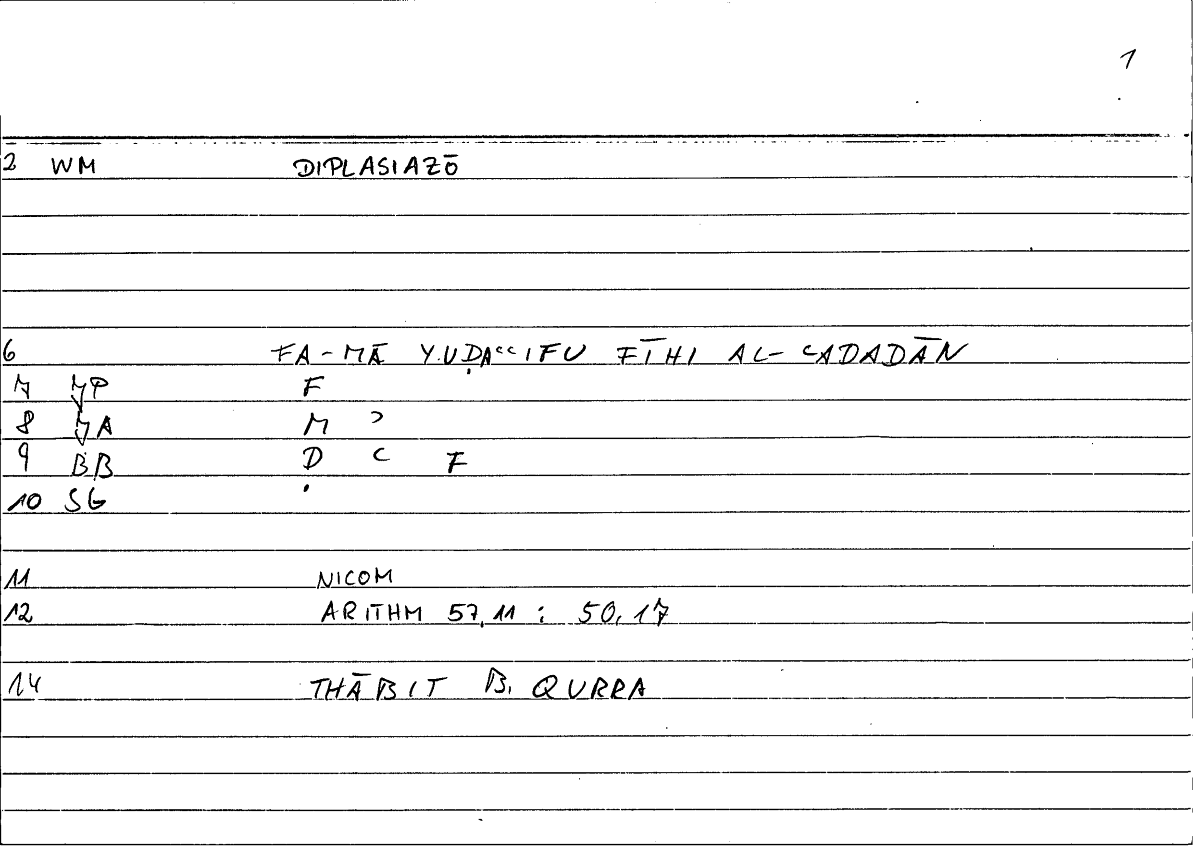 1
2 WM DIPLASIAZŌ
6 FA-MĀ YUḌAʿʿIFU FĪHI AL-ʿADADĀN
7 F
8 M ʾ
9 BB D ʿ F
10 SG .
11 NICOM
12 ARITHM 57,11 : 50,17
14 THĀBIT B. QURRA